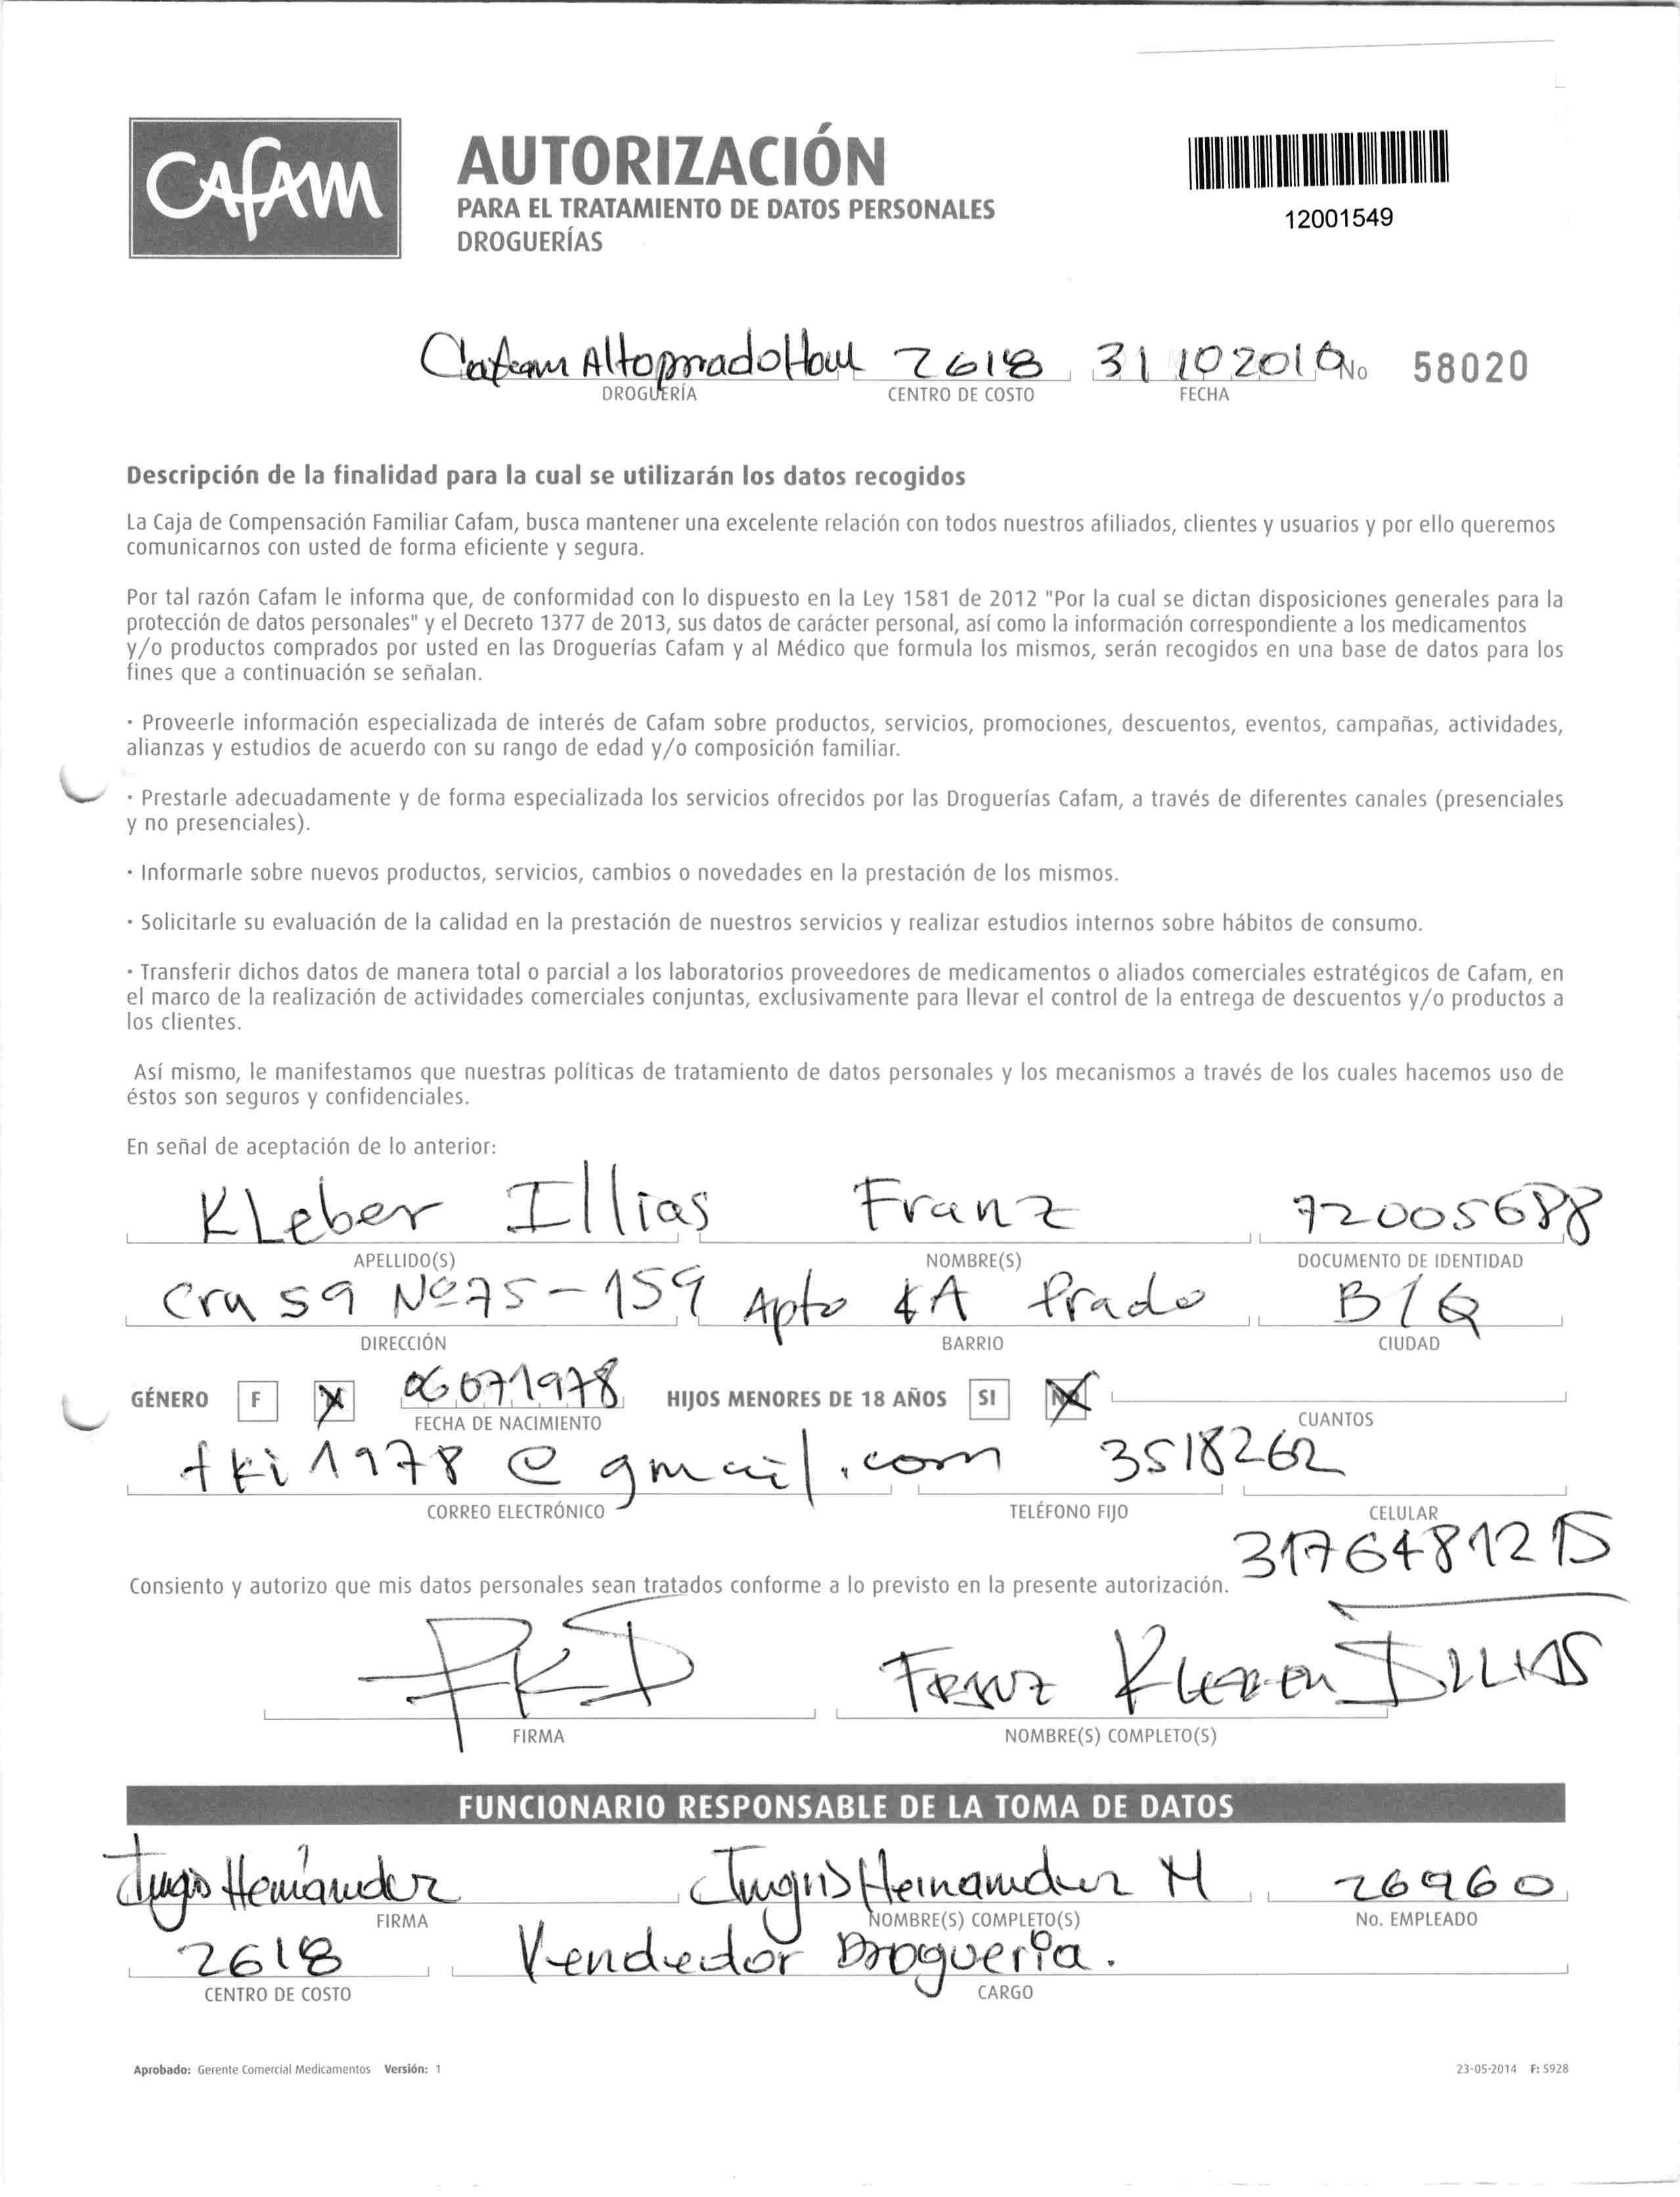 CAFAM
AUTORIZACIÓN
PARA EL TRATAMIENTO DE DATOS PERSONALES
DROGUERÍAS
12001549
Cafam Altoprado 2618 31 10 201 No 58020
DROGUERÍA CENTRO DE COSTO FECHA
Descripción de la finalidad para la cual se utilizarán los datos recogidos
La Caja de Compensación Familiar Cafam, busca mantener una excelente relación con todos nuestros afiliados, clientes y usuarios y por ello queremos
comunicarnos con usted de forma eficiente y segura.
Por tal razón Cafam le informa que, de conformidad con lo dispuesto en la Ley 1581 de 2012 "Por la cual se dictan disposiciones generales para la
protección de datos personales" y el Decreto 1377 de 2013, sus datos de carácter personal, así como la información correspondiente a los medicamentos
y/o productos comprados por usted en las Droguerías Cafam y al Médico que formula los mismos, serán recogidos en una base de datos para los
fines que a continuación se señalan.
· Proveerle información especializada de interés de Cafam sobre productos, servicios, promociones, descuentos, eventos, campañas, actividades,
alianzas y estudios de acuerdo con su rango de edad y/o composición familiar.
· Prestarle adecuadamente y de forma especializada los servicios ofrecidos por las Droguerías Cafam, a través de diferentes canales (presenciales
y no presenciales).
· Informarle sobre nuevos productos, servicios, cambios o novedades en la prestación de los mismos.
· Solicitarle su evaluación de la calidad en la prestación de nuestros servicios y realizar estudios internos sobre hábitos de consumo.
· Transferir dichos datos de manera total o parcial a los laboratorios proveedores de medicamentos o aliados comerciales estratégicos de Cafam, en
el marco de la realización de actividades comerciales conjuntas, exclusivamente para llevar el control de la entrega de descuentos y/o productos a
los clientes.
Así mismo, le manifestamos que nuestras políticas de tratamiento de datos personales y los mecanismos a través de los cuales hacemos uso de
éstos son seguros y confidenciales.
En señal de aceptación de lo anterior:
KLeber Illias Franz 72005688
APELLIDO(S) NOMBRE(S) DOCUMENTO DE IDENTIDAD
Cra 59 Nº 75-159 Apto Prado B/Q
DIRECCIÓN BARRIO CIUDAD
GÉNERO F 06071978 HIJOS MENORES DE 18 AÑOS SI NO
FECHA DE NACIMIENTO CUANTOS
fki1978@gmail.com 3518262
CORREO ELECTRÓNICO TELÉFONO FIJO CELULAR
3176481215
Consiento y autorizo que mis datos personales sean tratados conforme a lo previsto en la presente autorización.
FKI Franz Kleber ILLIAS
FIRMA NOMBRE(S) COMPLETO(S)
FUNCIONARIO RESPONSABLE DE LA TOMA DE DATOS
Ingris Hernandez Ingris Hernandez M 26960
FIRMA NOMBRE(S) COMPLETO(S) No. EMPLEADO
2618 Vendedor Droguería.
CENTRO DE COSTO CARGO
Aprobado: Gerente Comercial Medicamentos Versión: 1 23-05-2014 F: 5928